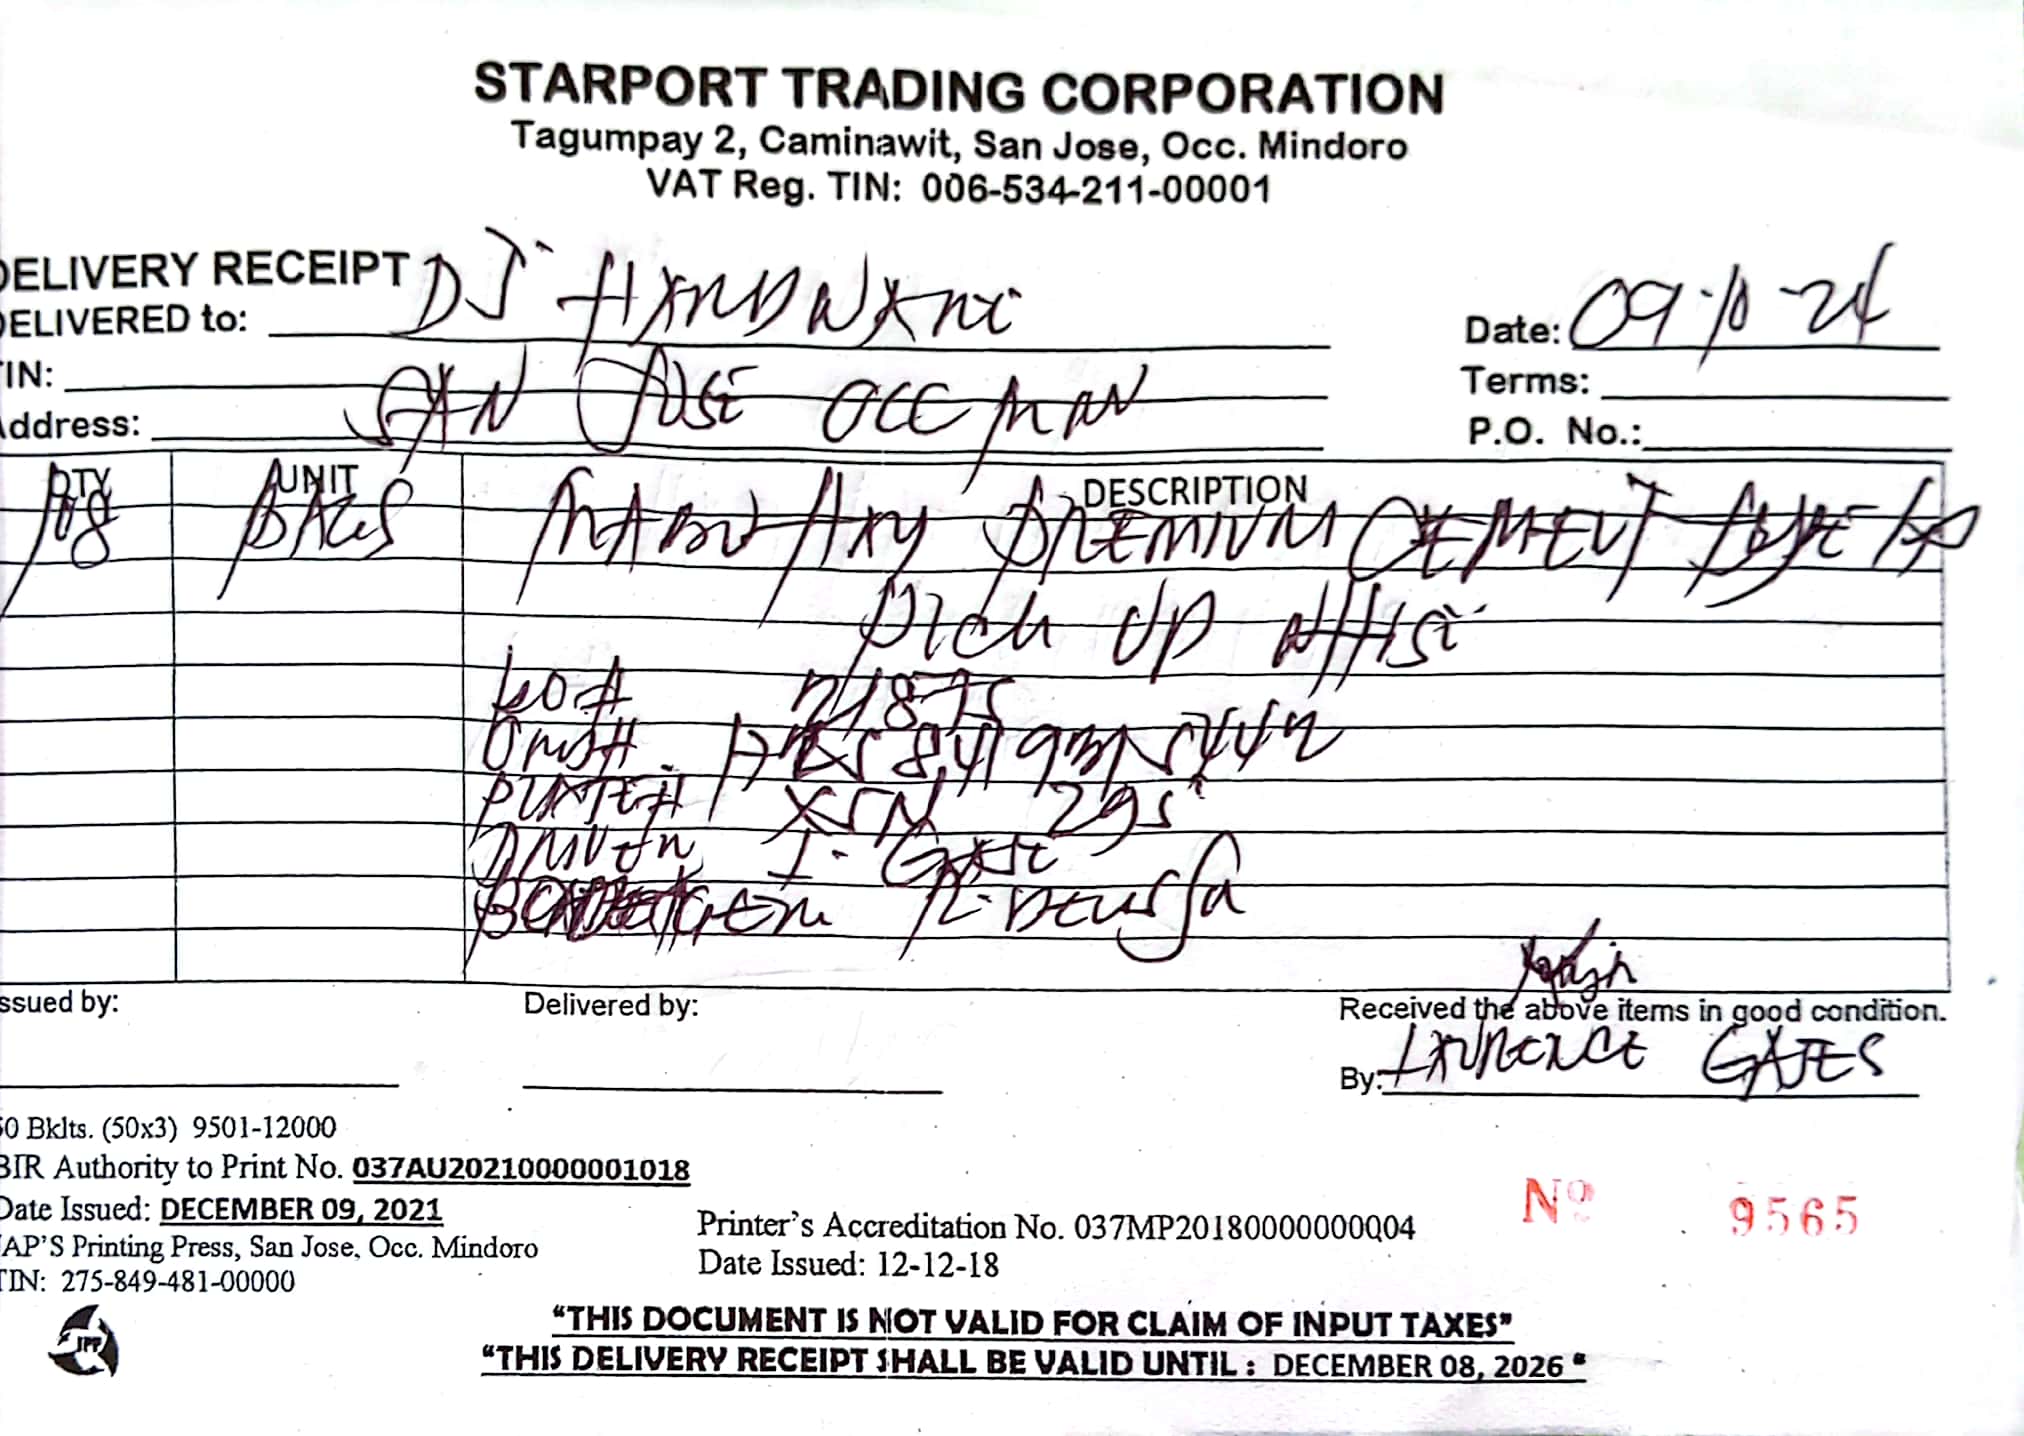 STARPORT TRADING CORPORATION
Tagumpay 2, Caminawit, San Jose, Occ. Mindoro
VAT Reg. TIN: 006-534-211-00001
DELIVERY RECEIPT
DELIVERED to: DJ HARDWARE
Date: 09-10-24
TIN:
Terms:
Address: SAN JOSE OCC MIN
P.O. No.:
QTY UNIT DESCRIPTION
108 BAGS PREMIUM CEMENT TYPE 1P
PICK UP WHSE
21875
PLATE# 295
DRIVER
Issued by:
Delivered by:
Received the above items in good condition.
By: LAURENCE GATES
50 Bklts. (50x3) 9501-12000
BIR Authority to Print No. 037AU20210000001018
Date Issued: DECEMBER 09, 2021
JAP'S Printing Press, San Jose, Occ. Mindoro
TIN: 275-849-481-00000
Printer's Accreditation No. 037MP20180000000004
Date Issued: 12-12-18
Nº 9565
JPP
“THIS DOCUMENT IS NOT VALID FOR CLAIM OF INPUT TAXES”
“THIS DELIVERY RECEIPT SHALL BE VALID UNTIL : DECEMBER 08, 2026 “